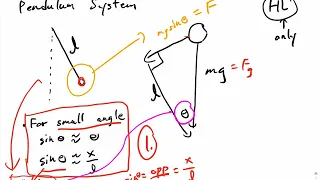 Pendulum System
HL
only
l
mg sinθ = F
l
mg = Fg
θ
For small angle
sin θ ≈ θ
sin θ ≈ x/l
1.
sinθ = opp = x/l